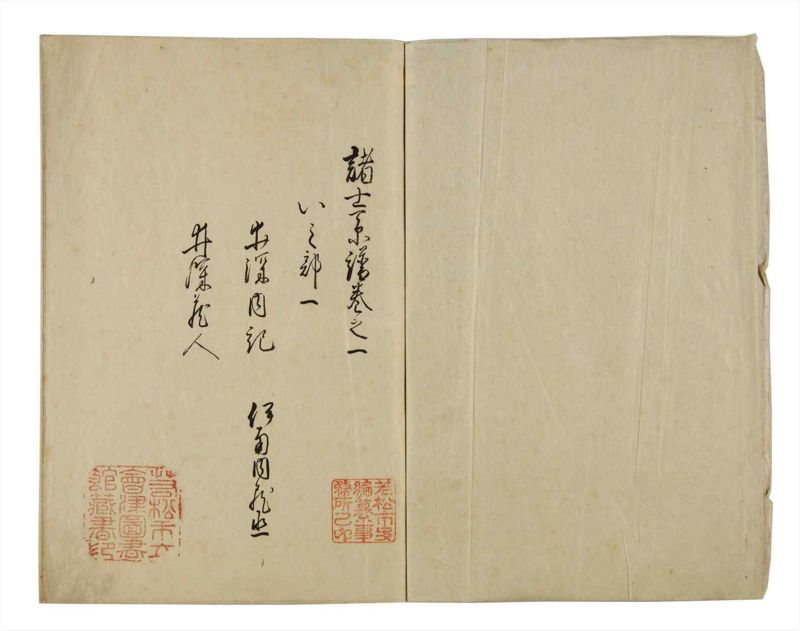 諸士系譜巻之一
いの部一
井深内記 伊南内蔵丞
井深蔵人
若松市史
編纂事
務所之印
若松市立
會津圖書
館藏書印